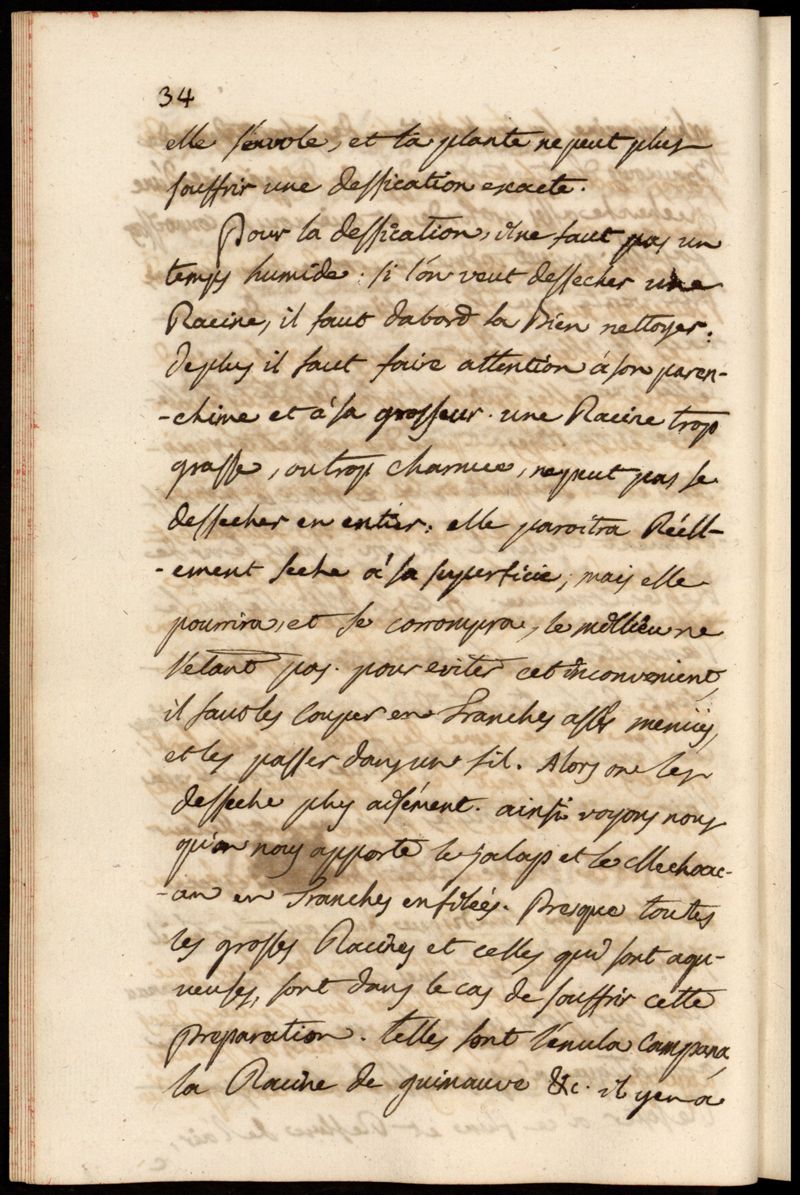 34
elle s'envole, et la plante ne peut plus
souffrir une dessication exacte.
Pour la dessication, il ne faut pas un
temps humide. si l'on veut dessecher une
Racine, il faut dabord la Bien nettoyer.
deplus il faut faire attention à son paren-
-chime et à sa grosseur. une Racine trop
grasse, ou trop charnue, ne peut pas se
dessecher en entier. elle paroitra Réell-
-ement seche à sa superficie, mais elle
pourrira, et se corrompra, le millieu ne
l'etant pas. pour eviter cet inconvenient,
il faut les couper en tranches assés menües,
et les passer dans un fil. Alors on les
desseche plus aisément. ainsi voyons nous
qu'on nous apporte le jalap et le Mechoac-
-an en tranches enfilées. Presque toutes
les grosses Racines et celles qui sont aqu-
ueuses, sont dans le cas de souffrir cette
preparation. telles sont l'enula Campana,
la Racine de guimauve &c. il y en a